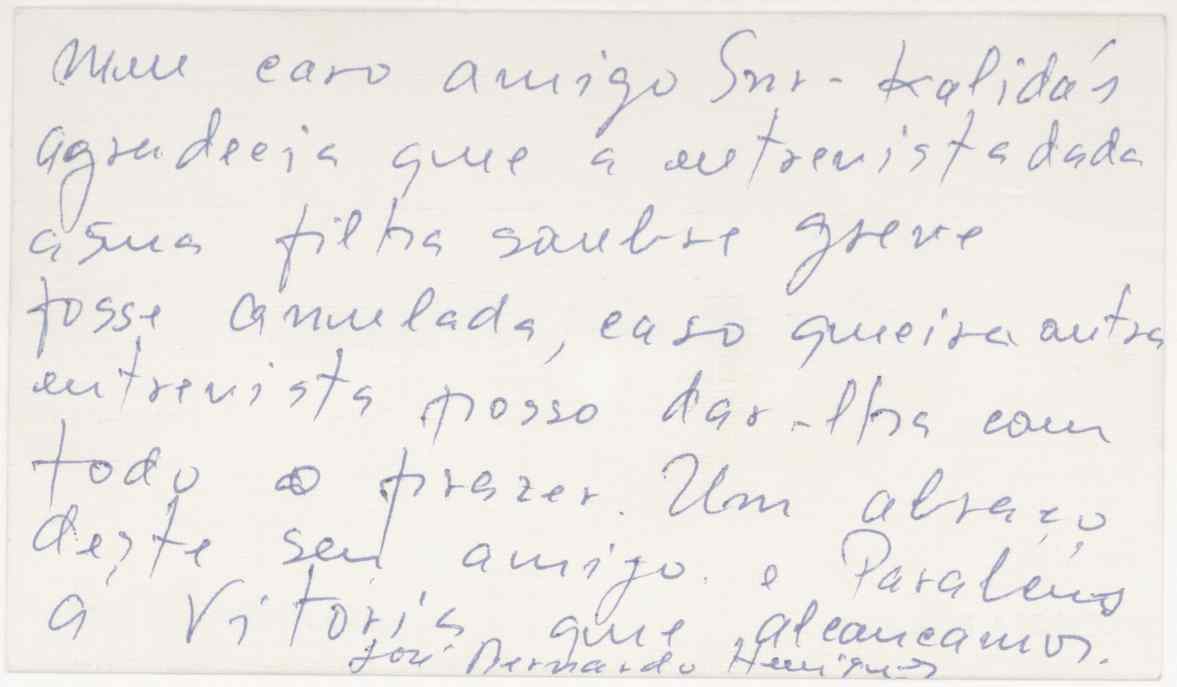 Meu caro amigo Snr- Kalidás
agradecia que a entrevista dada
a sua filha soubre greve
fosse annulada, caso queira outra
entrevista posso dar-lha com
todo o prazer. Um abraço
deste seu amigo. e Parabéns
a Vitoria que alcancamos.
José Bernardo Henriques